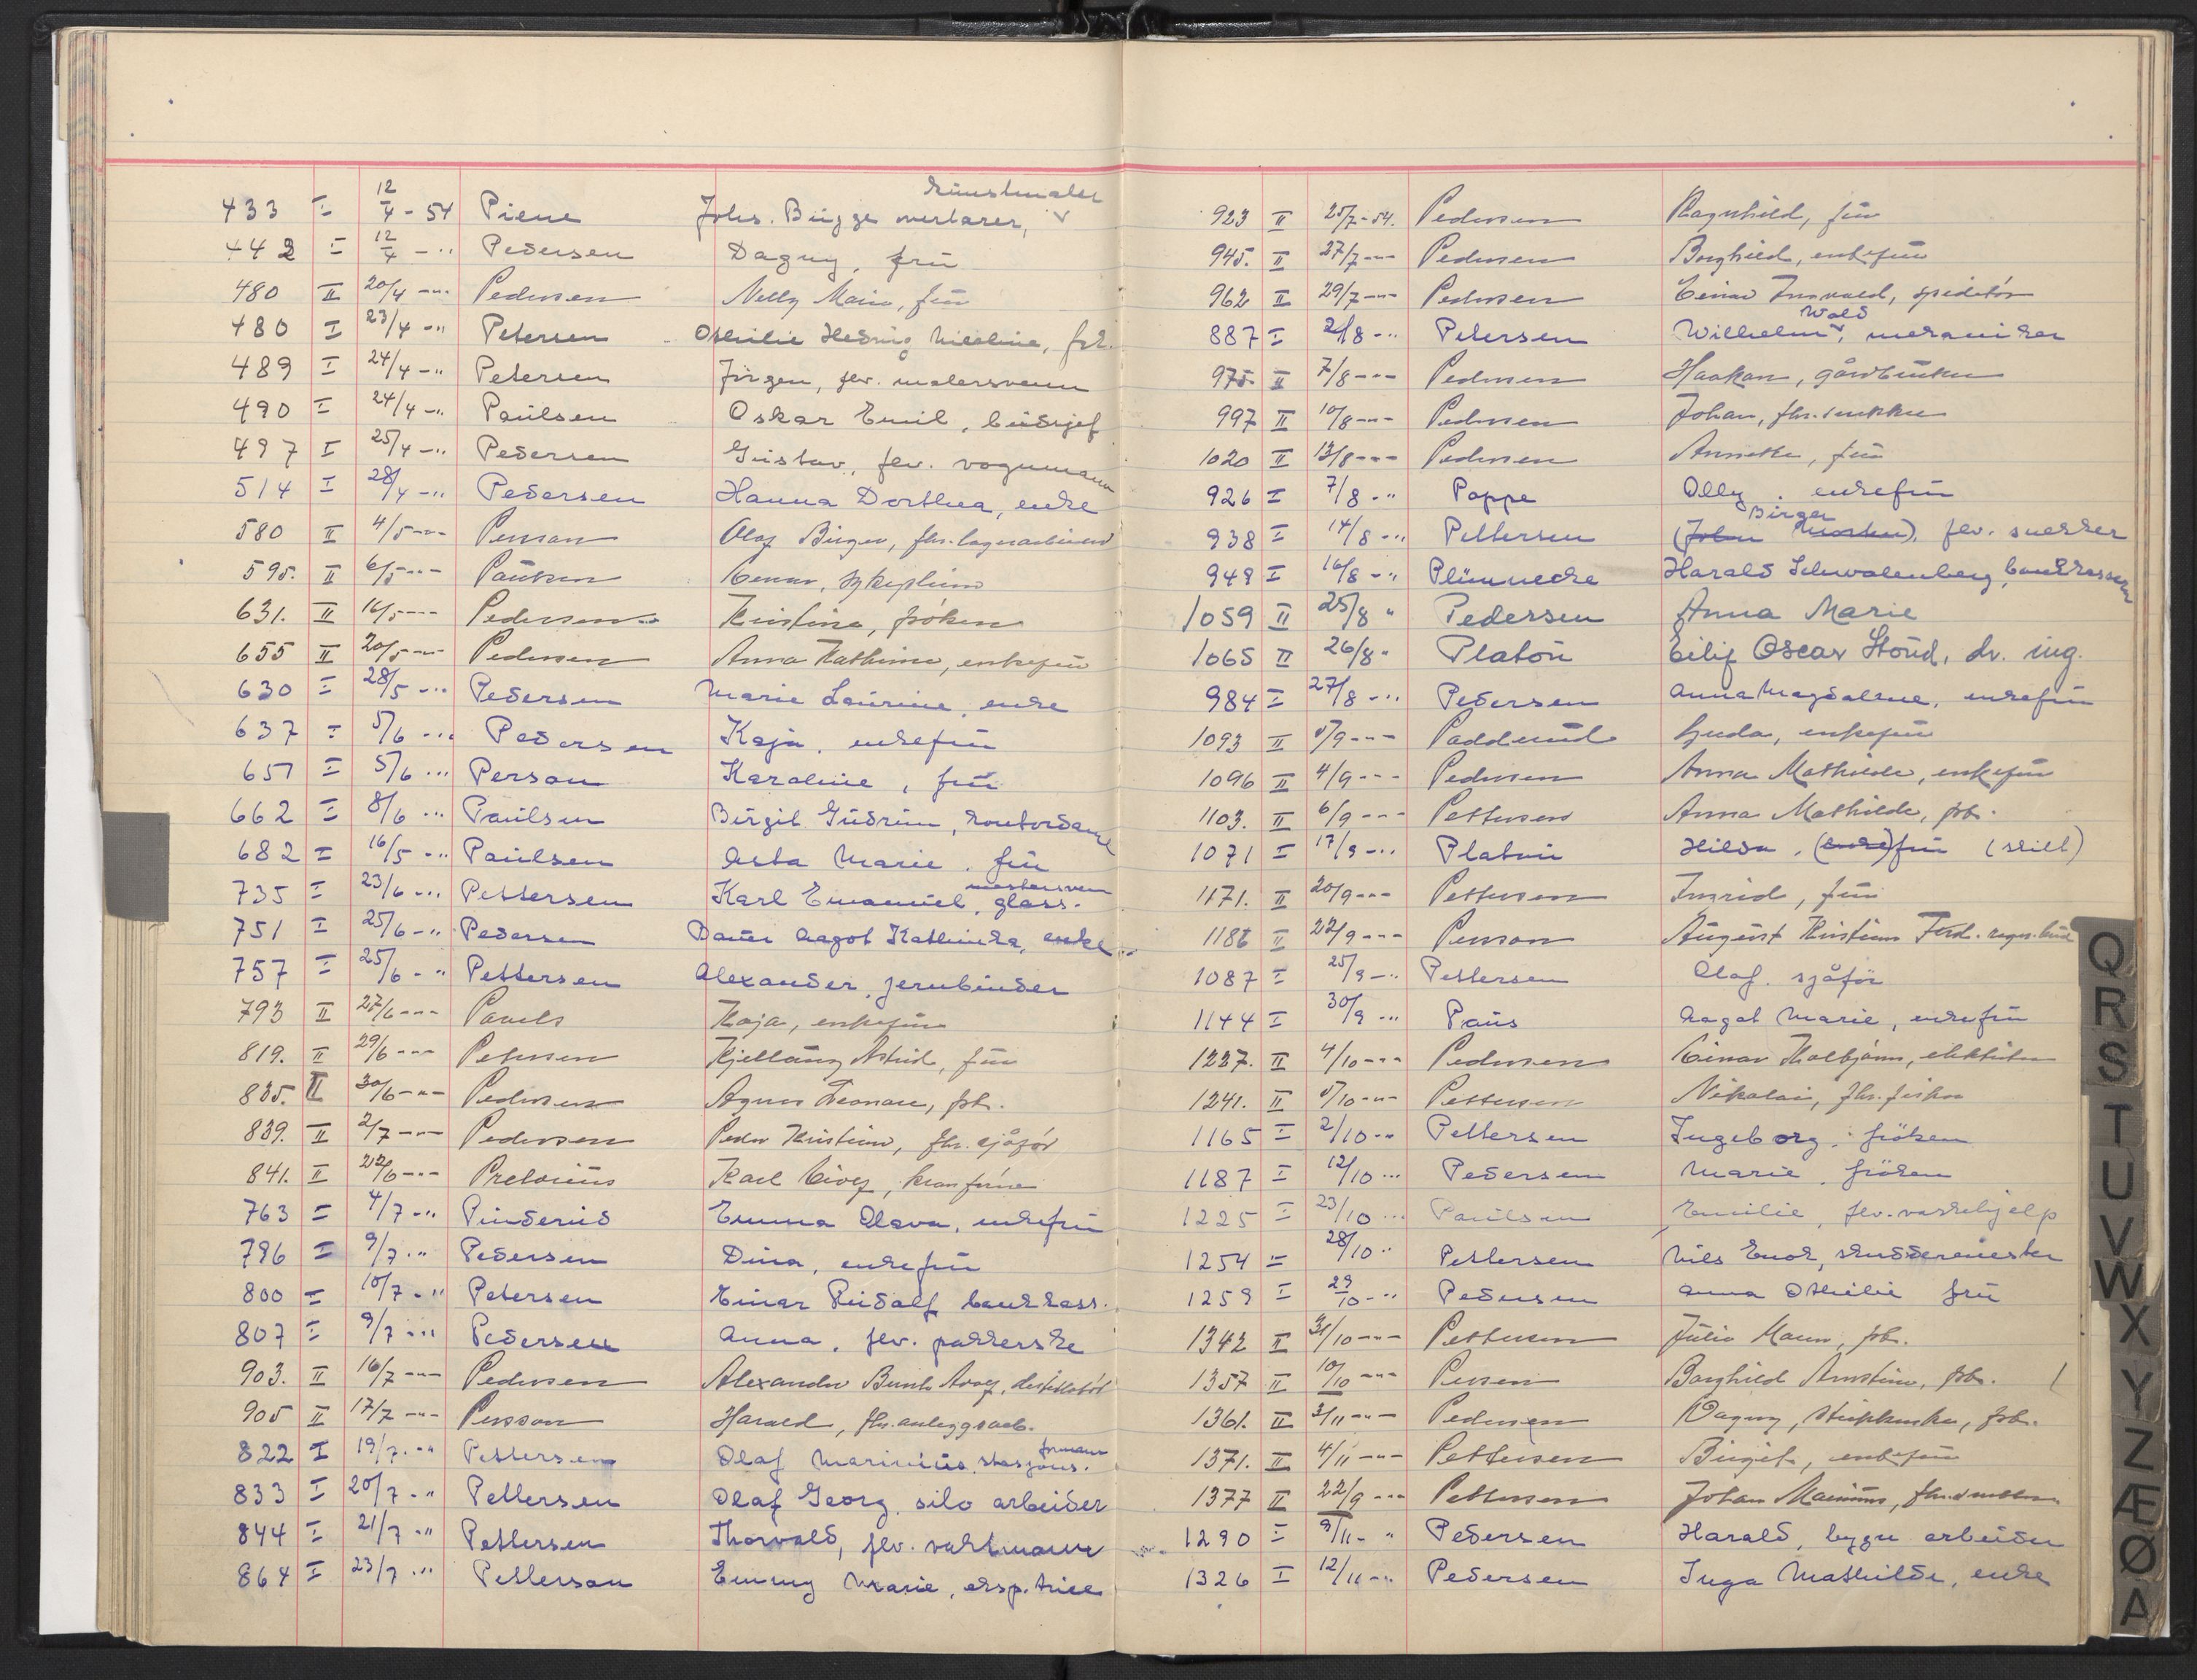 433 I 12/4 - 54 Piene Johs. Bugge overlærer, kunstmaler
442 I 12/4 - " Pedersen Dagny, fru
480 II 20/4 -"- Pedersen Nelly Marie, fru
480 I 23/4 - " Petersen Othilie Hedvig Nicoline, frk.
489 I 24/4 - " Petersen Jörgen, fhv. malersvenn
490 I 24/4 - " Paulsen Oskar Emil, budsjef
497 I 25/4 - " Pedersen Gustav, fhv. vognmann
514 I 28/4 - " Pedersen Hanna Dorthea, enke
580 II 4/5 -"- Persson Olaf Birger, fhv. lagerarbeider
595. II 6/5 -"- Paulsen Einar,
631. II 16/5 -"- Pedersen Kristine, fröken
655 II 20/5 -"- Pedersen Anna Kathrine, enkefru
630 I 28/5 - " Pedersen Marie Laurine, enke
637 I 5/6 - " Pedersen Kaja, enkefru
651 I 5/6 - " Person Karoline, fru
662 I 8/6 - " Paulsen Birgit Gudrun, kontordame
682 I 16/5 - " Paulsen Asta Marie, fru
735 I 23/6 - " Pettersen Karl Emanuel, glass-mestersvenn
751 I 25/6 - " Pedersen Aagot Kathinka, enke
757 I 25/6 - " Pettersen Alexander, jernbinder
793 II 27/6 -"- Pauels Kaja, enkefru
819. II 29/6 -"- Petersen Kjellaug Astrid, fru
835. II 30/6 -"- Pedersen Agnes Leonore, frk.
839. II 2/7 -"- Pedersen Peder Kristian, fhv. sjåför
841. II 22/6 -"- Pretorius Karl Eivef, kranförer
763 I 4/7 - " Pinderud Emma Olava, enkefru
796 I 9/7 - " Pedersen Dina, enkefru
800 I 10/7 - " Petersen Einar Rudolf bankkass.
807 I 9/7 - " Pedersen Anna, fhv. pakkerske
903. II 16/7 -"- Pedersen Alexander Bernh. Adolf, destillatör
905 II 17/7 -"- Persson Harald, fhv. anleggsarb.
822 I 19/7 - " Pettersen Olaf Marinius, stasjons-formann
833 I 20/7 - " Pettersen Olaf Georg, silo arbeider
844 I 21/7 - " Pettersen Thorvald, fhv. vaktmann
864 I 23/7 - " Petterson Emmy Marie, eksp. trise
923 II 25/7 - 54. Pedersen Ragnhild, fru
945. II 27/7 -"- Pedersen Borghild, enkefru
962 II 29/7 -"- Pedersen Einar Ingvald, speditör
887 I 2/8 - " Petersen Wilhelm Wold, mekaniker
975. II 7/8 -"- Pedersen Haakon, gårdbruker
997 II 10/8 -"- Pedersen Johan, fhv. snekker
1020 II 13/8 -"- Pedersen Annette, fru
926 I 7/8 - " Poppe Olly, enkefru
938 I 14/8 - " Pettersen (John Morten) Birger, fhv. snekker
949 I 16/8 - " Plünnecke Harald Schwalenberg, bankkasserer
1059 II 25/8 " Pedersen Anna Marie
1065 II 26/8 " Platou Eilif Oscar Stoud, dr. ing.
984 I 27/8 - " Pedersen Anna Magdalene, enkefru
1093 II 1/9 -"- Padderud Guda, enkefru
1096 II 4/9 -"- Pedersen Anna Mathilde, enkefru
1103. II 6/9 -"- Pettersen Anna Mathilde, frk.
1071 I 17/9 - " Platou Hilda, (enke)fru (skilt)
1171. II 20/9 -"- Pettersen Ingrid, fru
1186 II 22/9 -"- Persson August Kristian Ferd. regn.bud
1087 I 25/9 - " Pettersen Olaf, sjåför
1144 I 30/9 - " Paus Aagot Marie, enkefru
1237. II 4/10 -"- Pedersen Einar Thorbjörn, elektriker
1241. II 5/10 -"- Pettersen Nikolai, fhv. fisker
1165 I 2/10 - " Pettersen Ingeborg, fröken
1187 I 12/10 - " Pedersen Marie, fröken
1225 I 23/10 - " Paulsen Emilie, fhv. vaskehjelp
1254 I 28/10 " Pettersen Nils Enok, skreddermester
1259 I 29/10 - " Pedersen Anna Othilie fru
1342 II 31/10 -"- Pettersen Julie Marie, frk.
1357 II 10/10 -"- Persen Borghild Ernstine, frk.
1361. II 3/11 -"- Pedersen Dagny, strikkerske, frk.
1371. II 4/11 -"- Pettersen Birgit, enkefru
1377 II 22/9 -"- Pettersen Johan Marinius, fhv.
1290 I 9/11 - " Pedersen Harald, bygn arbeider
1326 I 12/11 - " Pedersen Inga Mathilde, enke
Q
R
S
T
U
V
W
X
Y
Z
Æ
Ø
A